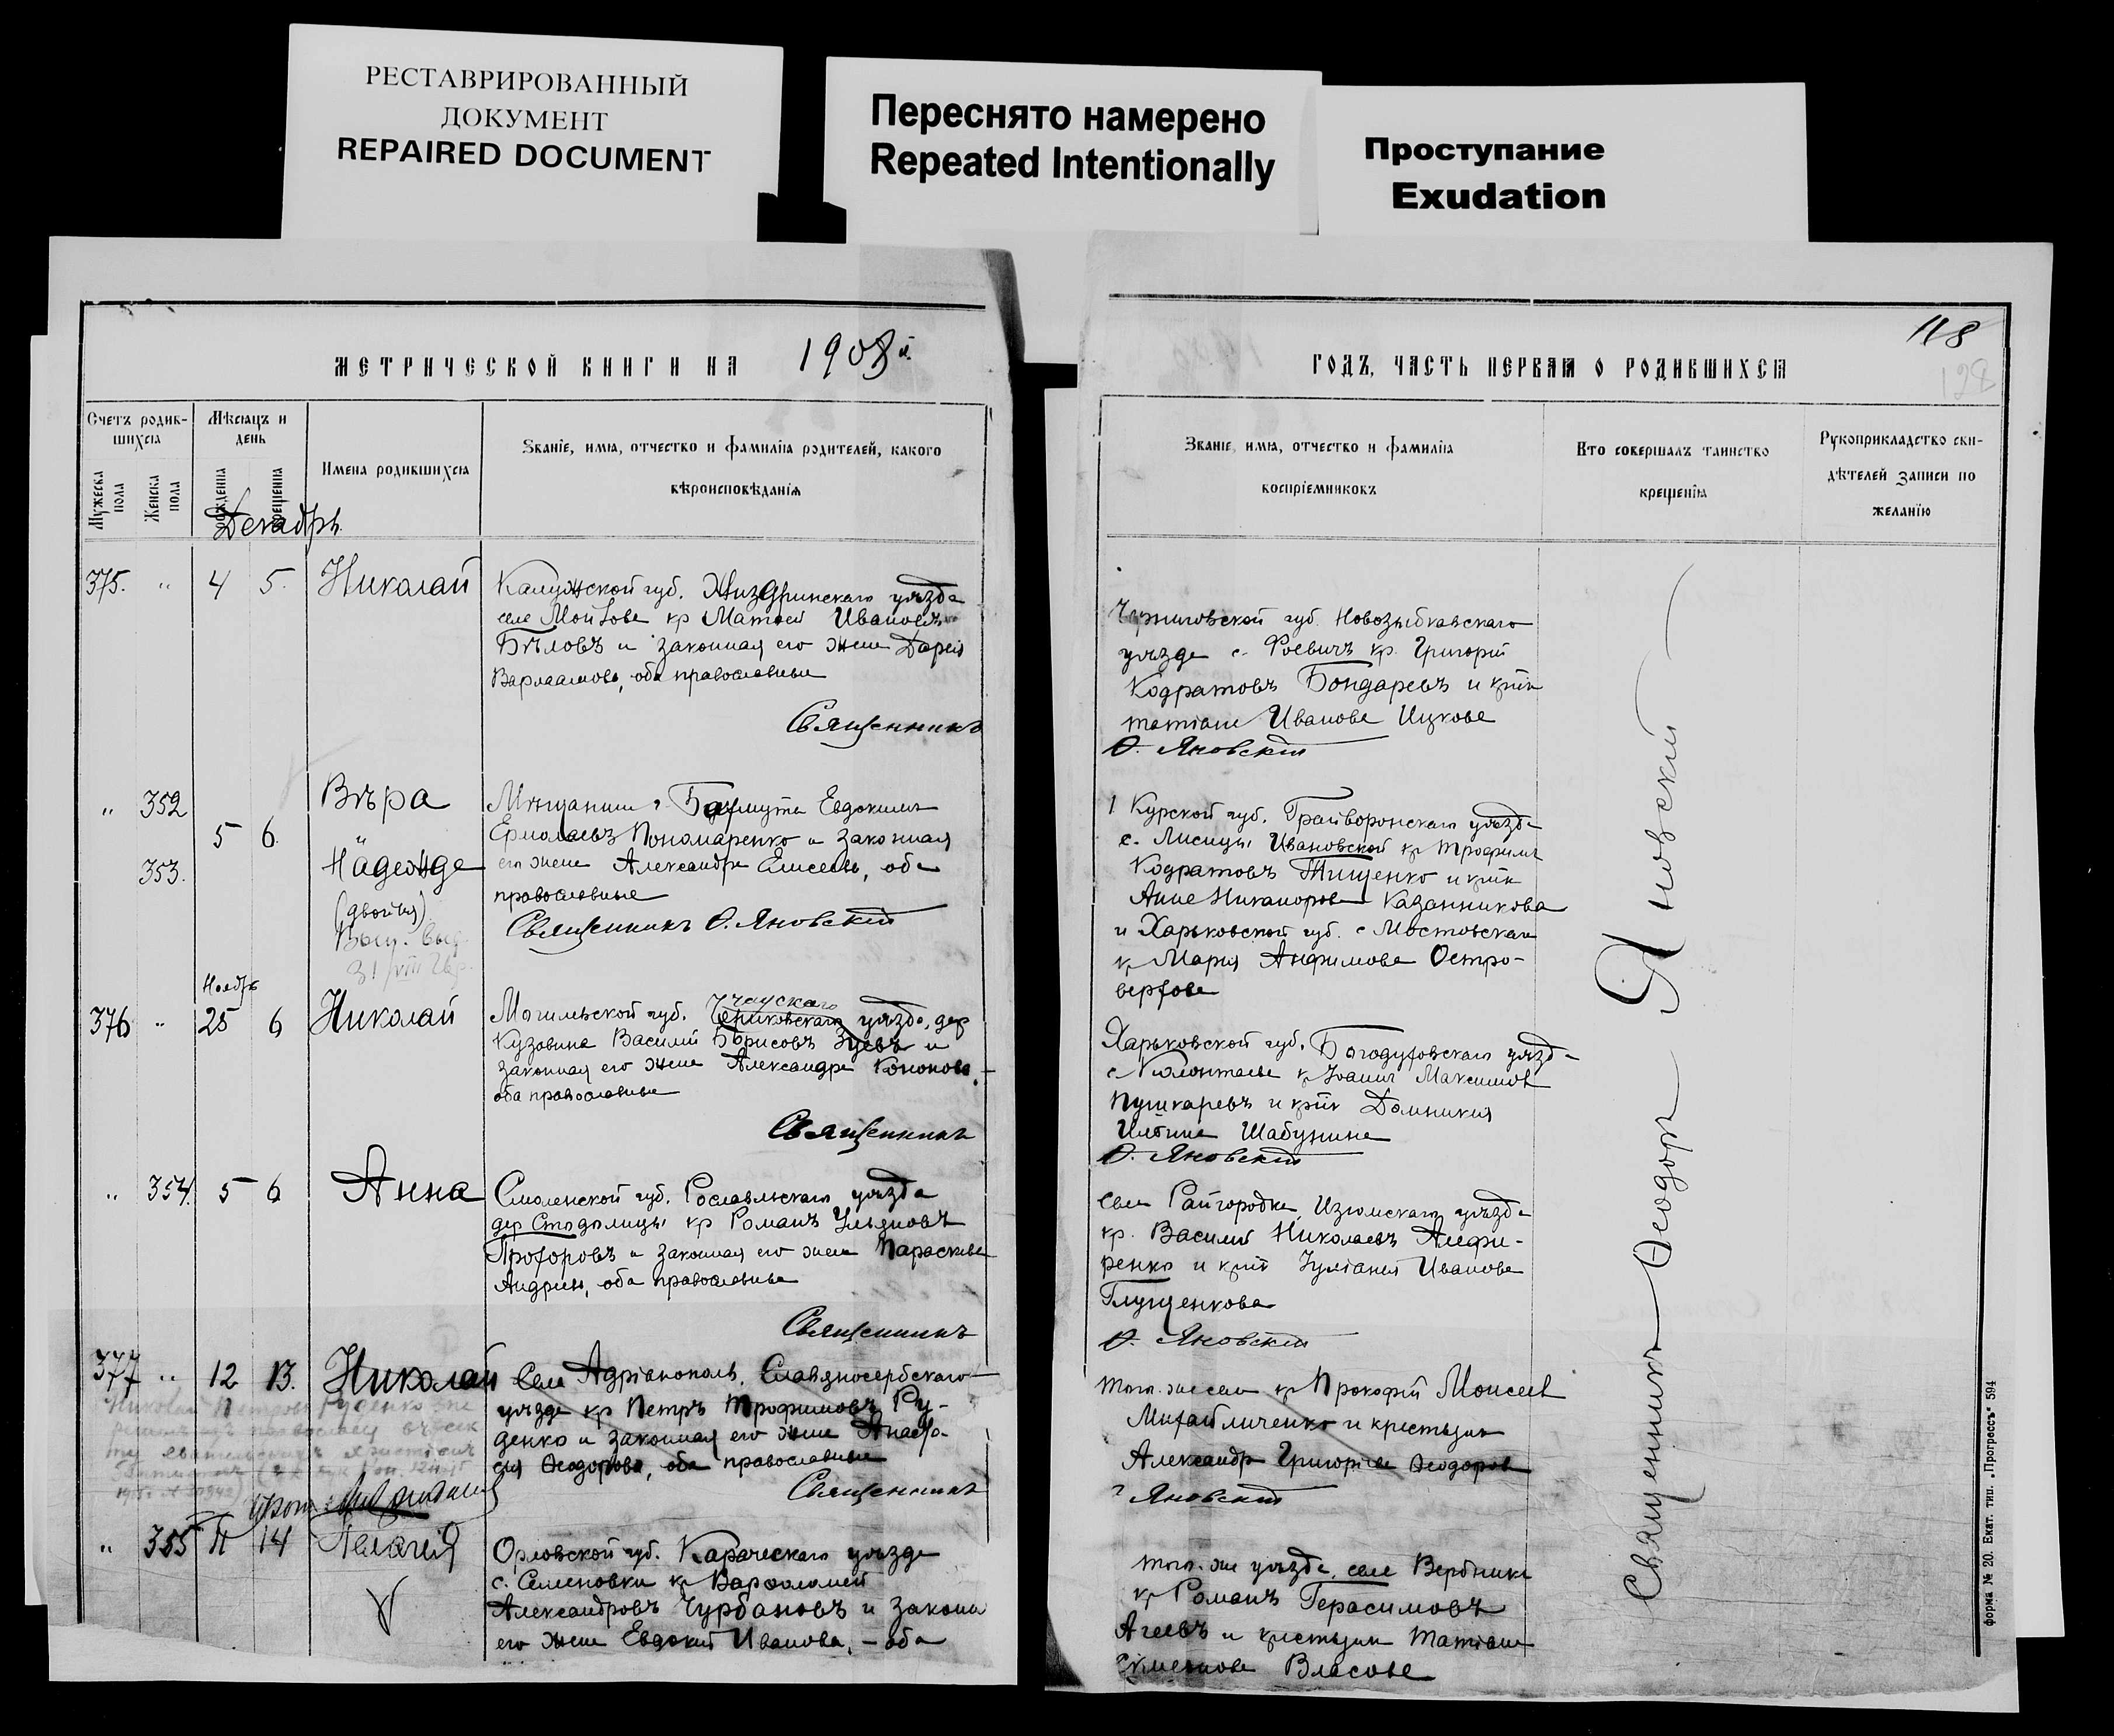 РЕСТАВРИРОВАННЫЙ
ДОКУМЕНТ
REPAIRED DOCUMENT
Переснято намерено
Repeated Intentionally
Проступание
Exudation
МЕТРИЧЕСКОЙ КНИГИ НА 1908й.
Счетъ родив-
шихся
Мужеска пола
Женска пола
Мѣсяцъ и
день
рожденія
крещенія
Имена родившихся
Званіе, имя, отчество и фамилія родителей, какого
вѣроисповѣданія
Декабрь
375. " 4 5. Николай
Калужской губ. Жиздринскаго уѣзда
кр Матѳей Ивановъ
Бѣловъ и законная его жена Дарія
Варлаамова, оба православные
Священникъ
" 352 Вѣра
5 6.
353. Надежда
(двойня)
Мѣщанинъ г. Бахмута Евдокимъ
Ермолаевъ Пономаренко и законная
его жена Александра Елисеева, оба
православные
Священникъ Ѳ. Яновскій
Ноябрь
376 " 25 6 Николай
Могилевской губ. Чаусскаго Чериковскаго уѣзда, дер
Кузовина Василій Борисовъ Зуевъ и
законная его жена Александра Кононова,
оба православные
Священникъ
" 354. 5 6 Анна
Смоленской губ. Рославльскаго уѣзда
дер Стодолищи кр Романъ Ульяновъ
Прохоровъ и законная его жена Параскева
Андреева, оба православные
Священникъ
377 " 12 13. Николай
Села Адріанополь, Славяносербскаго
уѣзда кр Петръ Трофимовъ Ру-
денко и законная его жена Анаста-
сія Ѳеодорова, оба православные
Священникъ
Николай Петровъ Руденко
" 355 14 Пелагія
Орловской губ. Карачевскаго уѣзда
с. Семеновки кр Варѳоломей
Александровъ Чурбановъ и законн
его жена Евдокія Иванова, – оба
118
128
ГОДЪ, ЧАСТЬ ПЕРВАЯ О РОДИВШИХСЯ
Званіе, имя, отчество и фамилія
воспріемниковъ
Кто совершалъ таинство
крещенія
Рукоприкладство сви-
дѣтелей записи по
желанію
Черниговской губ. Новозыбковскаго
уѣзда с. кр. Григорій
Кодратовъ Бондаревъ и кр-ка
Татіана Иванова Ицкова
Ѳ. Яновскій
Курской губ. Грайворонскаго уѣзда
с. Лисицы Ивановской кр Трофимъ
Кодратовъ Тищенко и кр-ка
Анна Никанорова Казанникова
и Харьковской губ. с Мостовская
кр Марія Анфимова Остро-
верхова
Харьковской губ. Богодуховскаго уѣзда
кр Іоаннъ Максимовъ
Пушкаревъ и кр-ка Домникія
Ильина Шабунина
Ѳ. Яновскій
Села Райгородка, Изюмскаго уѣзда
кр. Василій Николаевъ Алефи-
ренко и кр-ка Іуліанія Иванова
Глущенкова
Ѳ. Яновскій
Того же села кр Прокофій Моисеев
Михайличенко и крестьян
Александр Григоріева Ѳеодоров
Яновскій
Того же уѣзда, села Вербника
кр Романъ Герасимовъ
Агеевъ и крестьян Татіана
Власова
Священникъ Ѳеодоръ Яновскій
форма № 20. Екат. тип. „Прогрессъ“ 594